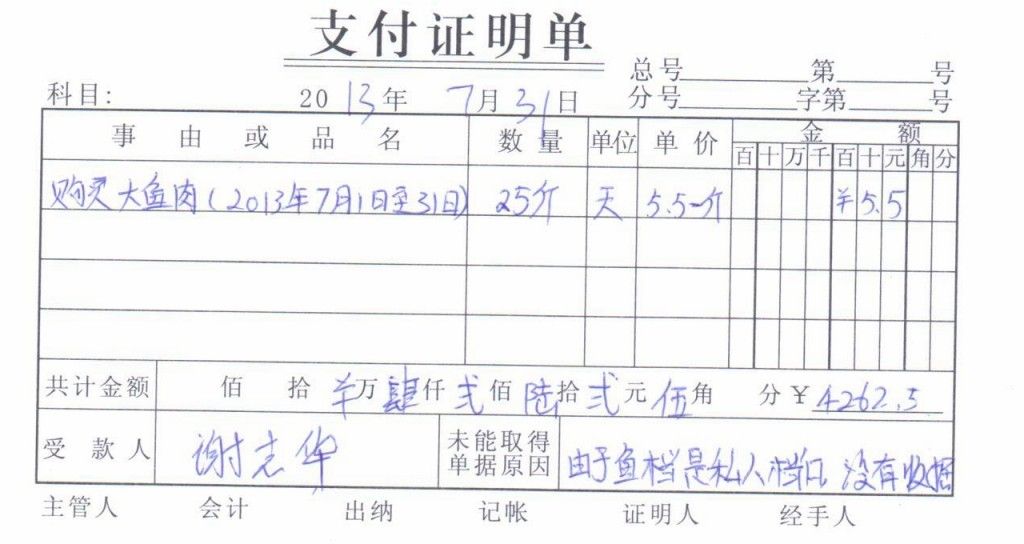 支付证明单
总号 第 号
科目: 2013年 7月31日 分号 字第 号
事由或品名 数量 单位 单价 金额
百 十 万 千 百 十 元 角 分
购买大鱼肉(2013年7月1日至31日) 25斤 天 5.5一斤 ¥5.5
共计金额 佰 拾 ¥万肆仟弍佰陆拾弍元伍角 分¥4262.5
受款人 谢志华 未能取得单据原因 由于鱼档是私人档口 没有收据
主管人 会计 出纳 记帐 证明人 经手人